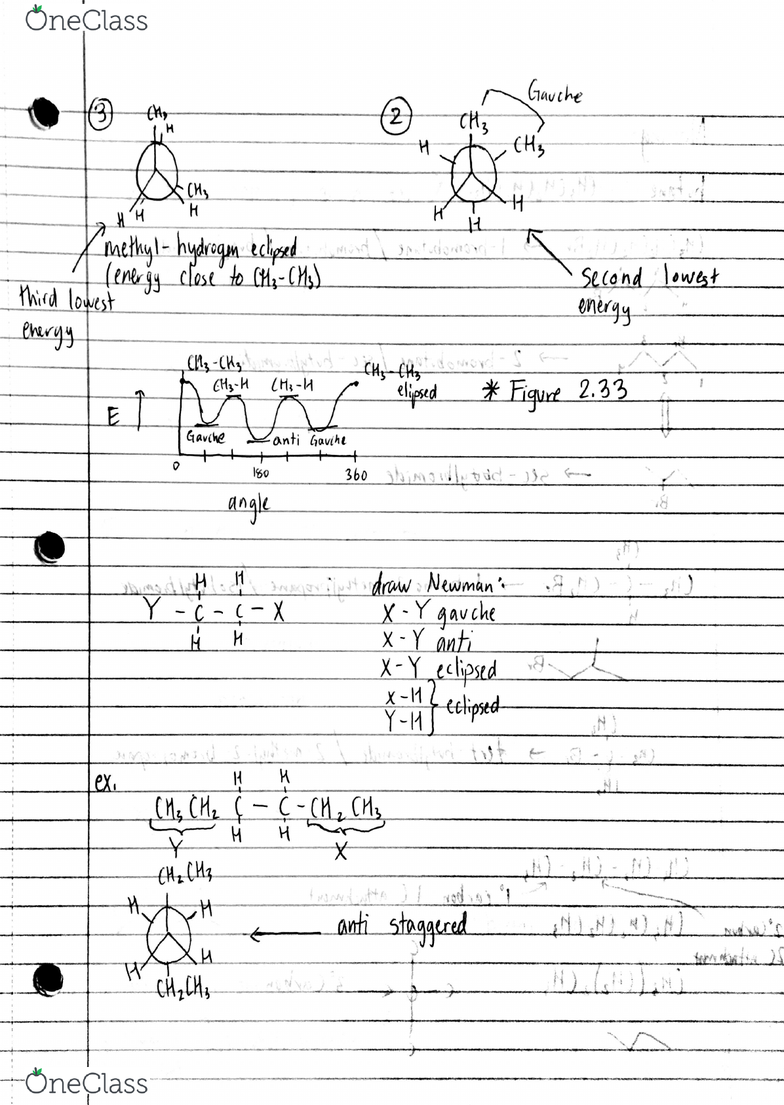 OneClass
③
CH3
H
CH3
H H H
methyl-hydrogen eclipsed
(energy close to CH3-CH3)
third lowest
energy
②
Gauche
CH3
H CH3
H H
H
Second lowest
energy
CH3-CH3
CH3-H CH3-H
CH3-CH3
elipsed
E
Gauche anti Gauche
0 180 360
angle
* Figure 2.33
H H
Y - C - C - X
H H
draw Newman:
X-Y gauche
X-Y anti
X-Y eclipsed
X-H } eclipsed
Y-H
ex.
H H
CH3 CH2 C - C - CH2 CH3
H H
Y X
CH2CH3
H H
H H
CH2CH3
anti staggered
OneClass